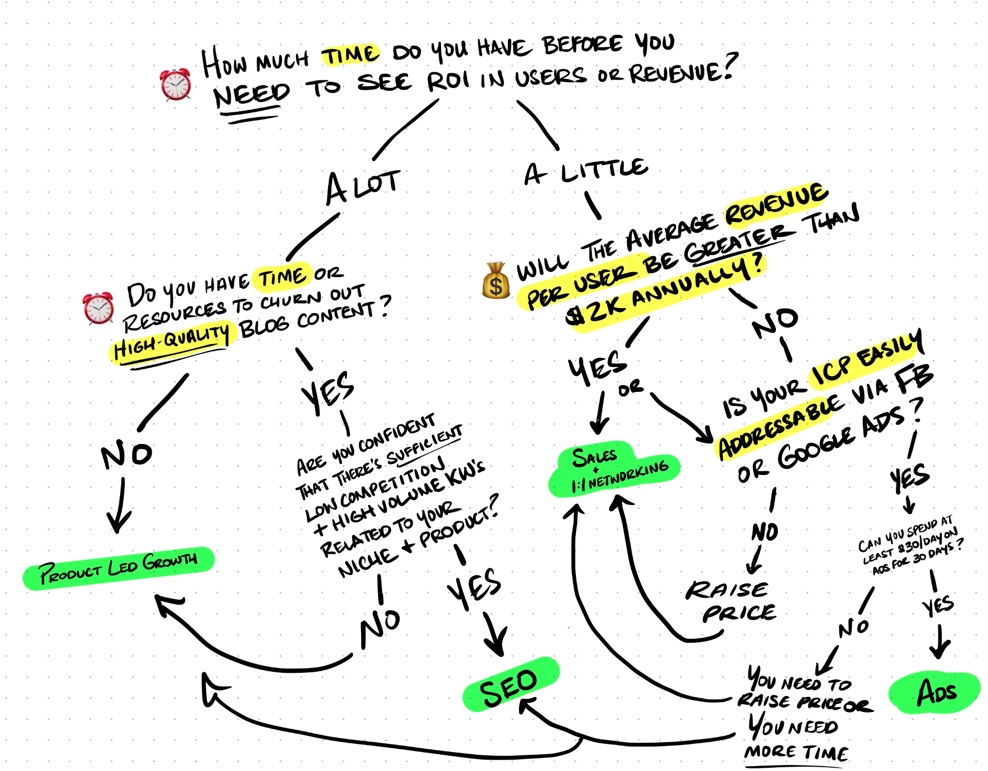 How much TIME do you have before you
NEED to see ROI in users or revenue?
A LOT
A LITTLE
Do you have TIME or
resources to churn out
HIGH-QUALITY blog content?
NO
YES
Product Led Growth
Are you confident
that there's sufficient
low competition
+ high volume KW's
related to your
niche + product?
NO
YES
SEO
$ Will the average REVENUE
PER USER be GREATER than
$2K ANNUALLY?
YES
OR
NO
Sales
+
1:1 Networking
Is your ICP EASILY
ADDRESSABLE via FB
or Google Ads?
NO
Raise
Price
YES
Can you spend at
least $30/day on
ads for 30 days?
NO
YES
You need to
raise price or
You need
more time
Ads